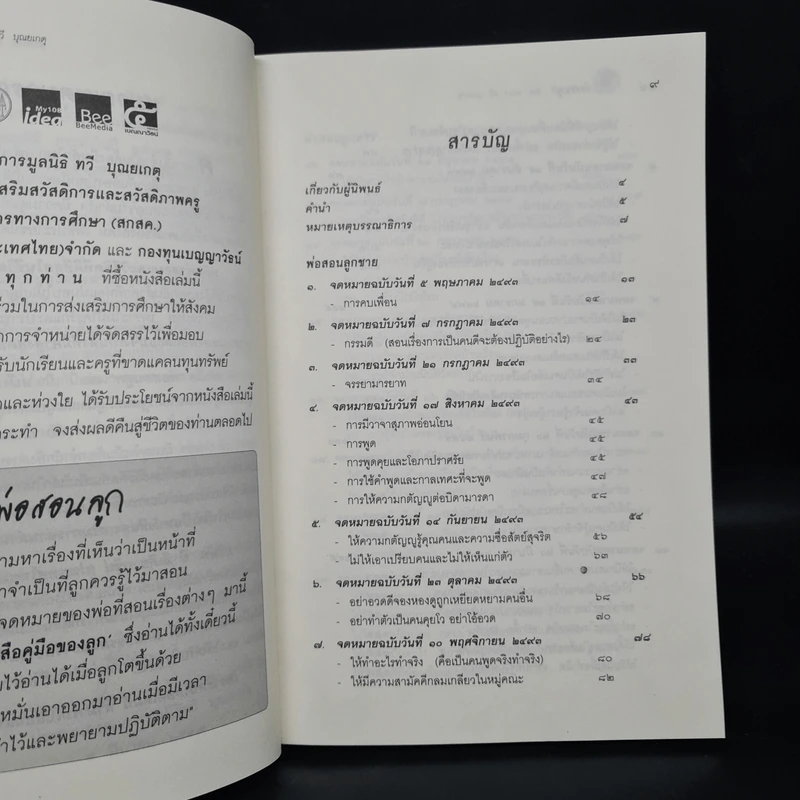 วี บุณยเกตุ
My108
idea
Bee
BeeMedia
เบญญาวัธน์
การมูลนิธิ ทวี บุณยเกตุ
สริมสวัสดิการและสวัสดิภาพครู
รทางการศึกษา (สกสค.)
ะเทศไทย)จำกัด และ กองทุนเบญญาวัธน์
ทุกท่าน ที่ซื้อหนังสือเล่มนี้
ร่วมในการส่งเสริมการศึกษาให้สังคม
กการจำหน่ายได้จัดสรรไว้เพื่อมอบ
รับนักเรียนและครูที่ขาดแคลนทุนทรัพย์
และห่วงใย ได้รับประโยชน์จากหนังสือเล่มนี้
ระทำ จงส่งผลดีคืนสู่ชีวิตของท่านตลอดไป
พ่อสอนลูก
ามหาเรื่องที่เห็นว่าเป็นหน้าที่
าจำเป็นที่ลูกควรรู้ไว้มาสอน
จดหมายของพ่อที่สอนเรื่องต่างๆ มานี้
สือคู่มือของลูก' ซึ่งอ่านได้ทั้งเดี๋ยวนี้
ไว้อ่านได้เมื่อลูกโตขึ้นด้วย
หมั่นเอาออกมาอ่านเมื่อมีเวลา
ไว้และพยายามปฏิบัติตาม"
๙
สารบัญ
เกี่ยวกับผู้นิพนธ์ ๔
คำนำ ๕
หมายเหตุบรรณาธิการ ๗
พ่อสอนลูกชาย
๑. จดหมายฉบับวันที่ ๕ พฤษภาคม ๒๔๙๓ ๑๓
- การคบเพื่อน ๑๔
๒. จดหมายฉบับวันที่ ๗ กรกฎาคม ๒๔๙๓ ๒๓
- กรรมดี (สอนเรื่องการเป็นคนดีจะต้องปฏิบัติอย่างไร) ๒๔
๓. จดหมายฉบับวันที่ ๒๑ กรกฎาคม ๒๔๙๓ ๓๓
- จรรยามารยาท ๓๔
๔. จดหมายฉบับวันที่ ๑๗ สิงหาคม ๒๔๙๓ ๔๓
- การมีวาจาสุภาพอ่อนโยน ๔๕
- การพูด ๔๕
- การพูดคุยและโอภาปราศรัย ๔๕
- การใช้คำพูดและกาลเทศะที่จะพูด ๔๗
- การให้ความกตัญญูต่อบิดามารดา ๔๘
๕. จดหมายฉบับวันที่ ๑๔ กันยายน ๒๔๙๓ ๕๔
- ให้ความกตัญญูรู้คุณคนและความซื่อสัตย์สุจริต ๕๖
- ไม่ให้เอาเปรียบคนและไม่ให้เห็นแก่ตัว ๖๓
๖. จดหมายฉบับวันที่ ๒๓ ตุลาคม ๒๔๙๓ ๖๖
- อย่าอวดดีจองหองดูถูกเหยียดหยามคนอื่น ๖๘
- อย่าทำตัวเป็นคนคุยโว อย่าโอ้อวด ๗๐
๗. จดหมายฉบับวันที่ ๑๐ พฤศจิกายน ๒๔๙๓ ๗๘
- ให้ทำอะไรทำจริง (คือเป็นคนพูดจริงทำจริง) ๘๐
- ให้มีความสามัคคีกลมเกลียวในหมู่คณะ ๘๒